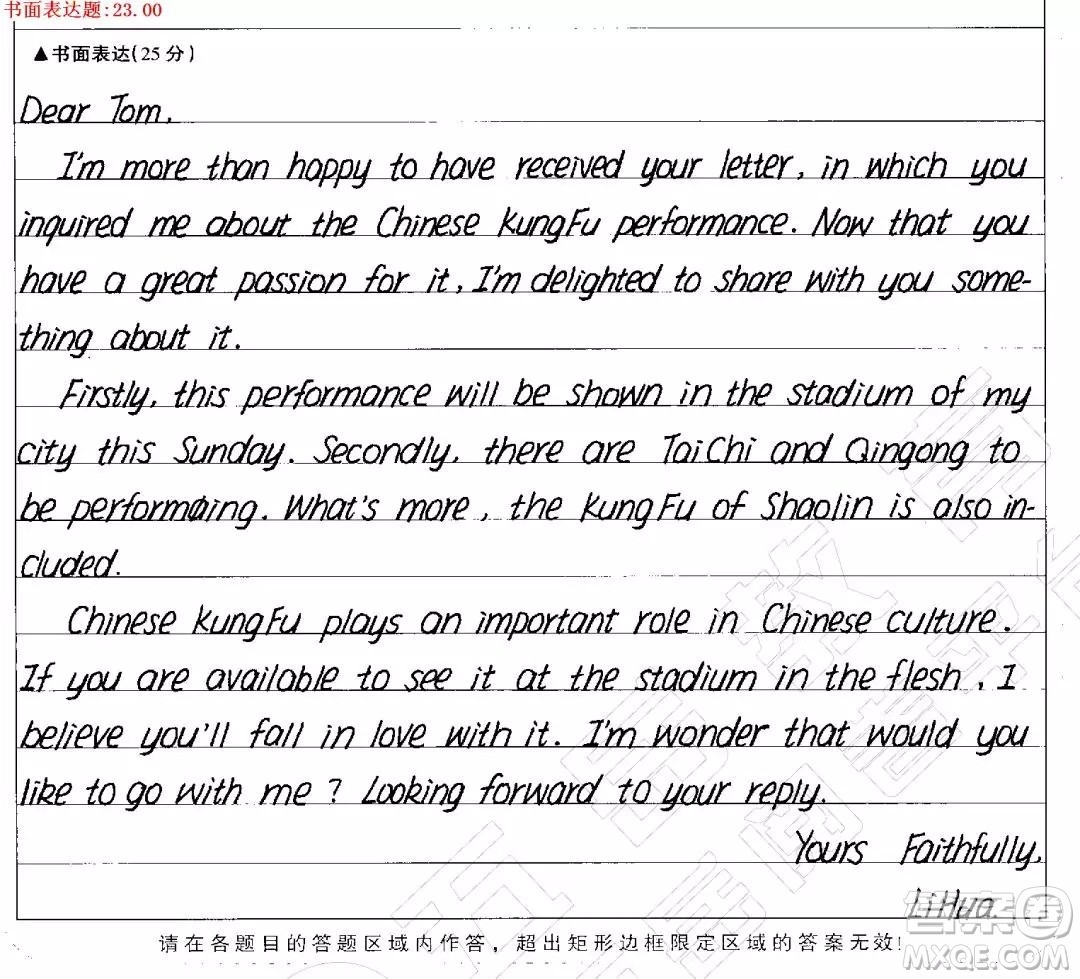 书面表达题:23.00
▲书面表达(25分)
Dear Tom,
I'm more than happy to have received your letter, in which you
inquired me about the Chinese KungFu performance. Now that you
have a great passion for it, I'm delighted to share with you some-
thing about it.
Firstly, this performance will be shown in the stadium of my
city this Sunday. Secondly, there are TaiChi and Qingong to
be performing. What's more, the KungFu of Shaolin is also in-
cluded.
Chinese KungFu plays an important role in Chinese culture.
If you are available to see it at the stadium in the flesh, I
believe you'll fall in love with it. I'm wonder that would you
like to go with me? Looking forward to your reply.
Yours Faithfully,
LiHua.
请在各题目的答题区域内作答，超出矩形边框限定区域的答案无效!
MXQE.COM